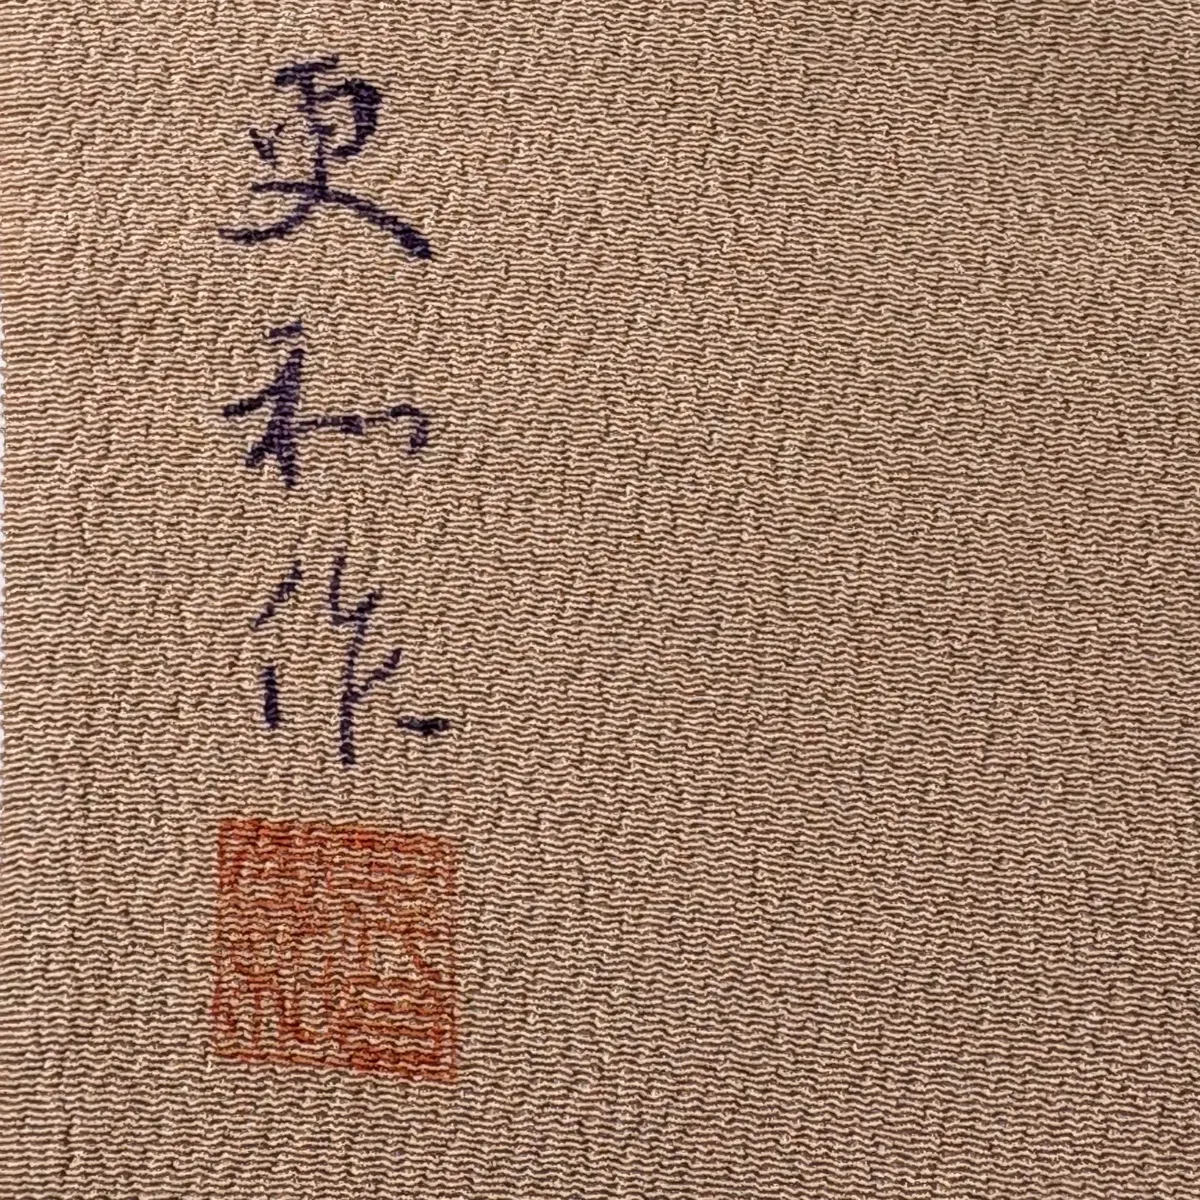 更和作